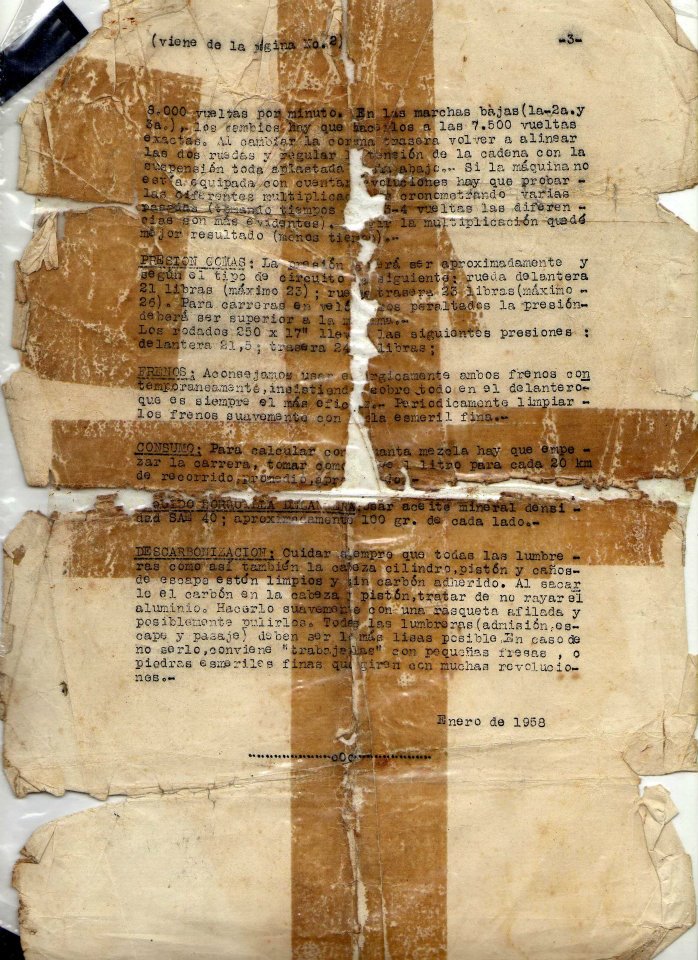 (viene de la página No.2) -3-
8.000 vueltas por minuto. En las marchas bajas(1a-2a.y
3a.), los cambios hay que hacerlos a las 7.500 vueltas
exactas. Al cambiar la corona trasera volver a alinear
las dos ruedas y regular tensión de la cadena con la
suspensión toda aplastada abajo.- Si la máquina no
está equipada con cuentarrevoluciones hay que probar-
las diferentes multiplicac cronometrando varias
pasadas (tomando tiempos 4 vueltas las diferen-
cias son más evidentes). la multiplicación que dé
mejor resultado (menos tiempo).-
PRESION GOMAS: La presión deberá ser aproximadamente y
según el tipo de circuito siguiente: rueda delantera
21 libras (máximo 23); rueda trasera 23 libras(máximo -
26). Para carreras en peraltados la presión-
deberá ser superior a la
Los rodados 250 x 17" las siguientes presiones :
delantera 21,5; trasera libras;
FRENOS: Aconsejamos usar enérgicamente ambos frenos con
temporaneamente,insistiendo sobre todo en el delantero-
que es siempre el más eficaz.- Periodicamente limpiar-
los frenos suavemente con tela esmeril fina.-
CONSUMO: Para calcular con cuanta mezcla hay que empe -
zar la carrera, tomar como 1 litro para cada 20 km
de recorrido,promedio,
HORQUILLA DELANTERA usar aceite mineral densi
dad SAE 40; aproximadamente 100 gr. de cada lado.-
DESCARBONIZACION: Cuidar siempre que todas las lumbre -
ras como así también la cabeza cilindro,pistón y caños-
de escape estén limpios y sin carbón adherido. Al sacar
lo el carbón en la cabeza pistón,tratar de no rayar el
aluminio. Hacerlo suavemente con una rasqueta afilada y
posiblemente pulirlos. Todas las lumbreras(admisión,es-
cape y pasaje) deben ser lo más lisas posible.En caso de
no serlo,conviene "trabajarlas" con pequeñas fresas , o
piedras esmeriles finas que giren con muchas revolucio-
nes.-
Enero de 1958
-----------------oOo-----------------